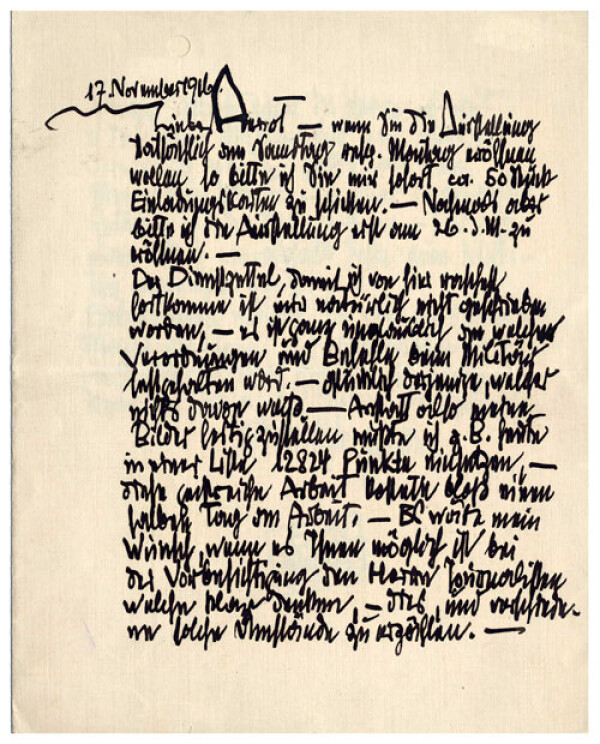 17. November 1916.
Lieber Arnot — wenn Sie die Ausstellung
tatsächlich am Samstag resp. Montag eröffnen
wollen, so bitte ich Sie mir sofort ca. 50 Stück
Einladungskarten zu schicken. — Nochmals aber
bitte ich die Ausstellung erst am 26. d. M. zu
eröffnen. —
Der Dienstzettel, damit ich von hier
fortkomme ist mir natürlich nicht geschrieben
worden, — es ist ganz an welchen
Verordnungen und Befehle beim Militär
festgehalten wird. — derjenige, welcher
nichts davon weiß — Anstatt also meine
Bilder fertigzustellen mußte ich z. B. heute
in einer Liste 12824 Punkte einsetzen, —
diese geistreiche Arbeit kostete bloß einen
halben Tag an Arbeit. — Es wäre mein
Wunsch, wenn es Ihnen möglich ist bei
der Vorbesichtigung den Herren Journalisten
welche denken, — dies und verschiede-
ne solche Umstände zu erzählen. —